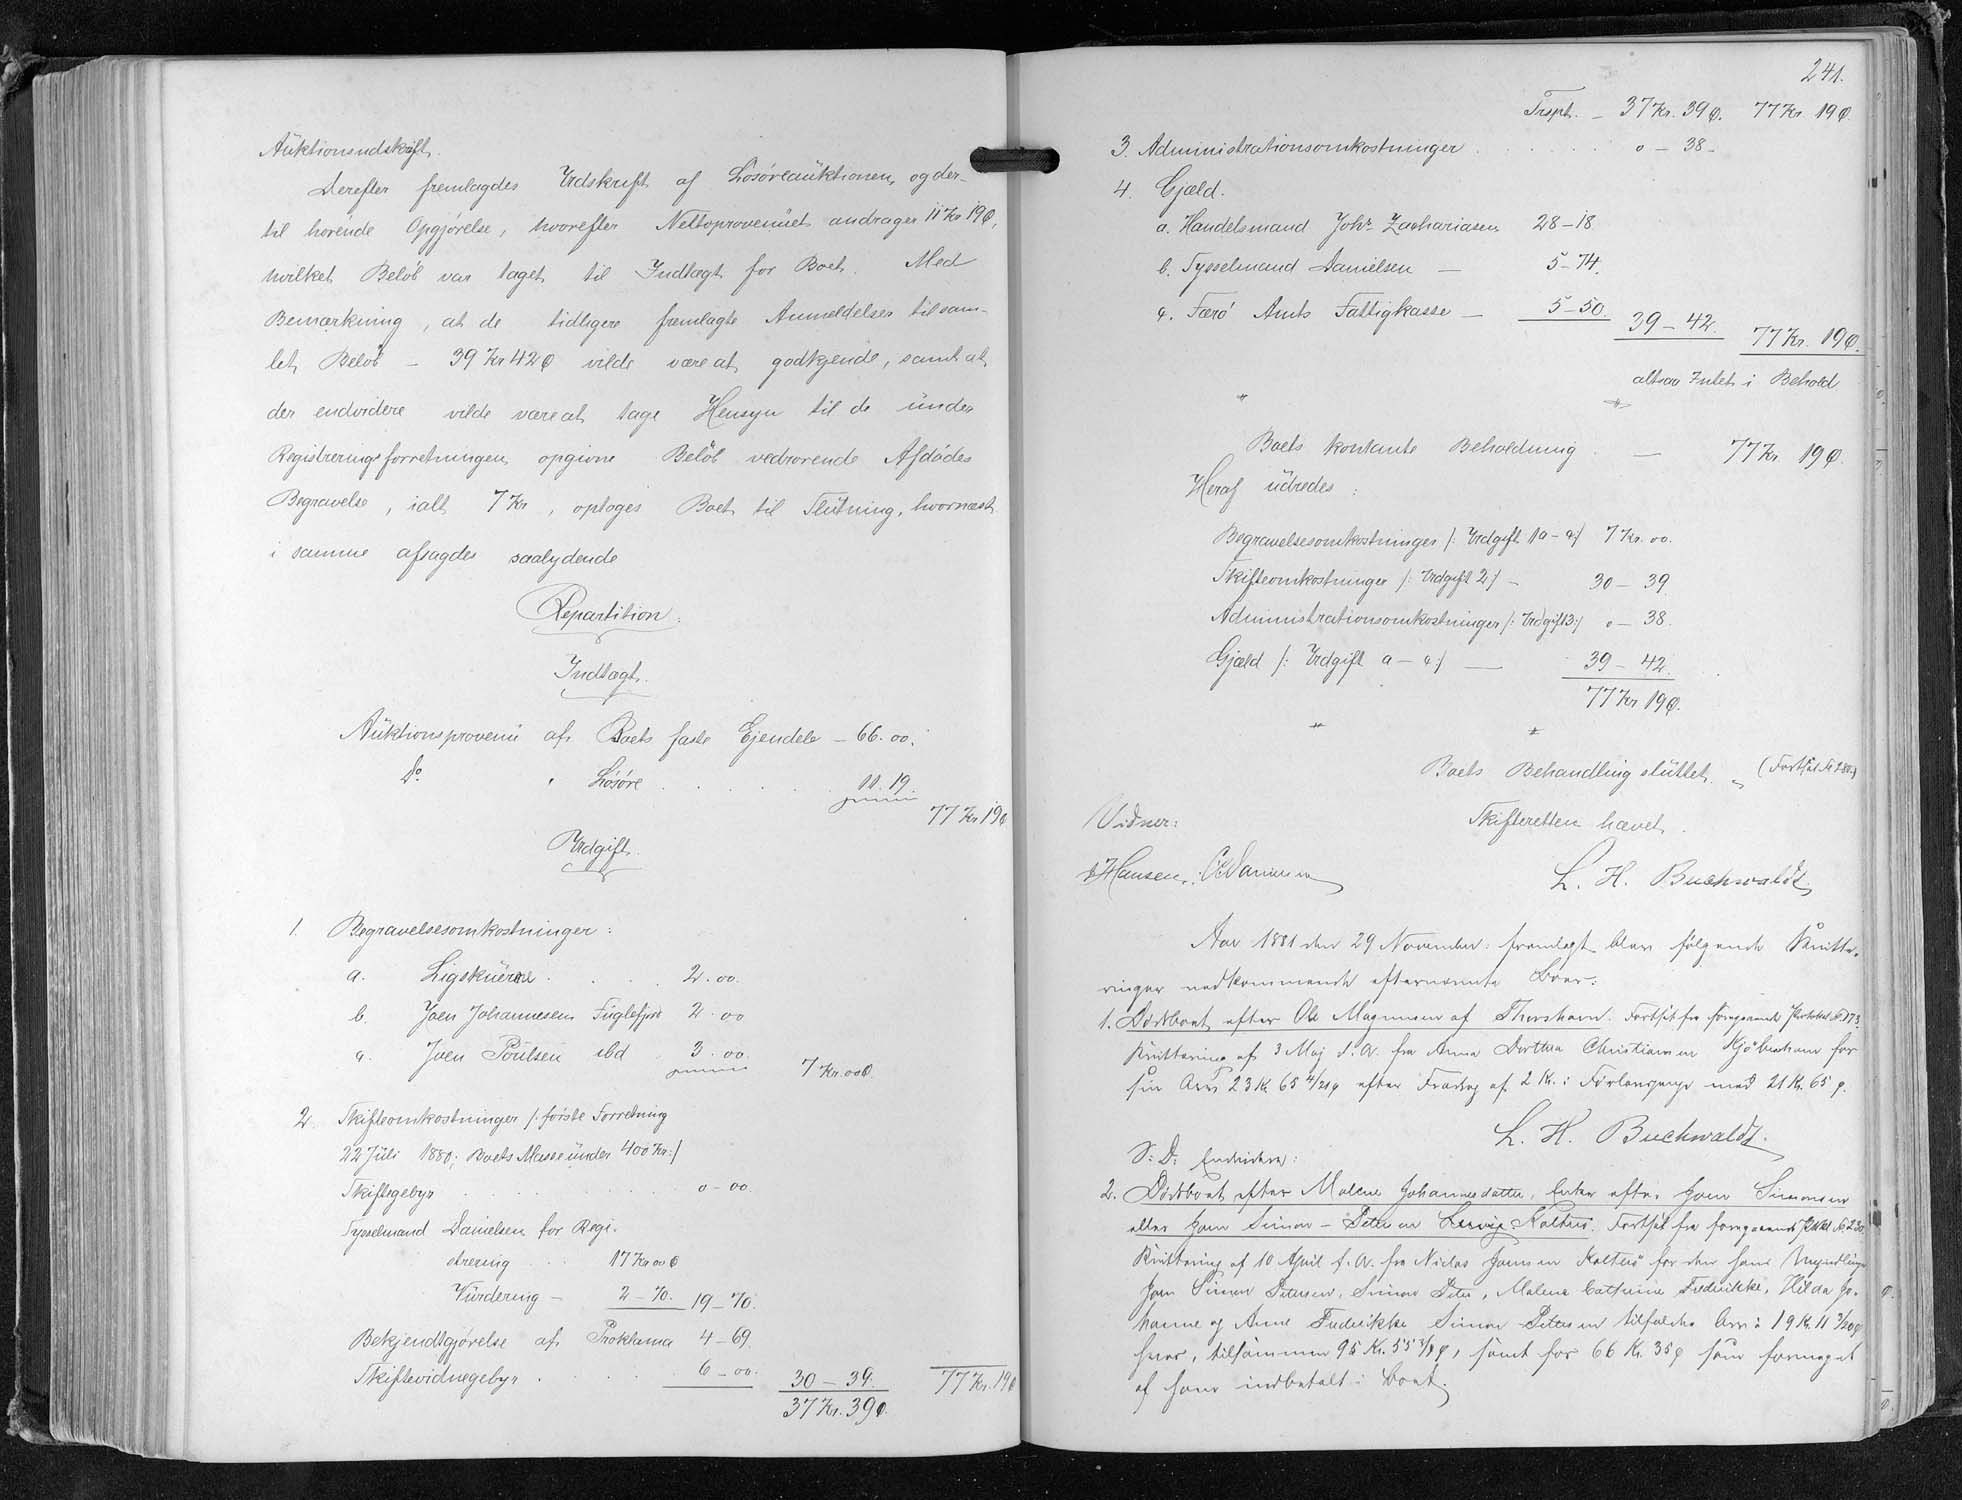 Auktionsudskrift.
Derefter fremlagdes Udskrift af Løsøreauktionen, og der-
til hørende Opgjørelse, hvorefter Nettoprovenuet andrager 11 Kr 19 Ø,
hvilket Beløb var taget til Indtægt for Boet. Med
Bemærkning, at de tidligere fremlagte Anmeldelser tilsam-
let Beløb – 39 Kr 42 Ø vilde være at godkjende, samt at
der endvidere vilde være at tage Hensyn til de under
Registreringsforretningen opgivne Beløb vedrørende Afdødes
Begravelse, ialt 7 Kr, optoges Boet til Slutning, hvornæst
i samme afsagdes saalydende
Repartition.
Indtægt.
Auktionsprovenu af Boets faste Ejendele – 66. 00.
Do " Løsøre . . . . . . 11. 19.
77 Kr 19 Ø
Udgift.
1. Begravelsesomkostninger:
a. Ligskuerne . . . . 2. 00.
b. Joen Johannesen Fuglefjord 2. 00
c. Joen Poulsen ibd 3. 00. 7 Kr. 00 Ø.
2. Skifteomkostninger /: første Forretning
22 Juli 1880; Boets Masse under 400 Kr :/
Skiftegebyr . . . . . . 0 – 00.
Sysselmand Danielsen for Regi-
strering . . . 17 Kr 00 Ø
Vurdering – 2 – 70. 19 – 70.
Bekjendtgjørelse af Proklama 4 – 69.
Skiftevidnegebyr . . . . . 6 – 00. 30 – 39. 77 Kr. 19 Ø
37 Kr. 39 Ø.
241.
Trspt. – 37 Kr. 39 Ø. 77 Kr. 19 Ø.
3. Administrationsomkostninger . . . . . . 0 – 38 –
4. Gjæld.
a. Handelsmand Johs Zachariasen 28 – 18.
b. Sysselmand Danielsen – 5 – 74.
c. Færø Amts Fattigkasse – 5 – 50. 39 – 42. 77 Kr. 19 Ø.
altsaa Intet i Behold
Boets kontante Beholdning – 77 Kr 19 Ø.
Heraf udredes:
Begravelsesomkostninger /: Udgift 1 a – c :/ 7 Kr. 00.
Skifteomkostninger /: Udgift 2 :/ – 30 – 39.
Administrationsomkostninger /: Udgift 3 :/ 0 – 38.
Gjæld /: Udgift a – c :/ — 39 – 42.
77 Kr 19 Ø.
Boets Behandling sluttet. (Fortsat
Skifteretten hævet.
Vidner:
Hansen. L. H. Buchwaldt.
Aar 1881 den 29 November: fremlagt blev følgende Kvitte-
ringer vedkommende efternævnte Boer:
1. Dødsboet efter Ole Magnussen af Thorshavn. Fortsat fra foregaaende Protokol
Kvittering af 3 Maj d. A. fra Anna Dorthea Christiansen Kjøbenhavn for
sin Arv 23 Kr. 65 4/21 Ø efter Fradrag af 2 Kr. i Forlængeuge med 21 Kr. 65 Ø.
L. H. Buchwaldt.
S: D: Endvidere:
2. Dødsboet efter Malene Johannesdatter, Enke efter Joen Simonsen
eller Joen Simon – Petersen Kaltrus. Fortsat fra foregaaende
Kvittering af 10 April d. A. fra Niclas Joensen Kaltrus for den hans Myndlinge
Joen Simon Petersen, Simon Peter, Malene Cathrine Frederikke, Hilda Jo-
hanne og Anne Frederikke Simon Petersen tilfaldne Arv à 19 Kr. 11
hver, tilsammen 95 Kr. 55 samt for 66 Kr. 35 Ø som formeget
af ham indbetalt i Boet.